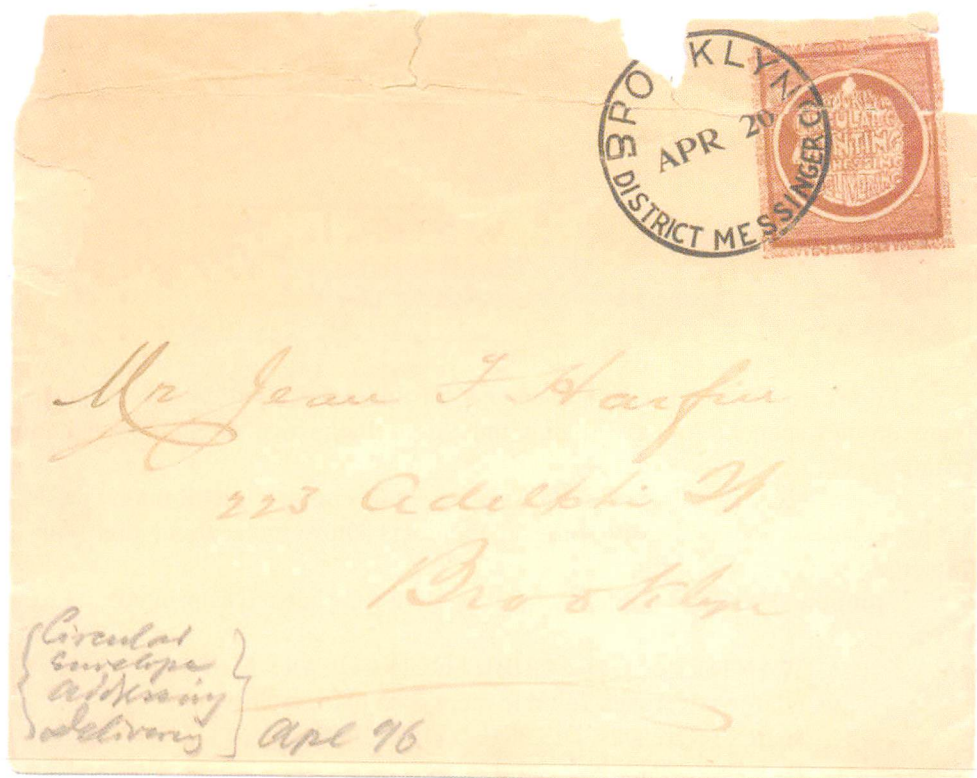 BROOKLYN
APR 20
DISTRICT MESSINGER CO
Mr Jean F. Harfin
223 Adelphi St
Brooklyn
Circular
Envelope
Addressing
Delivering
Apl 96